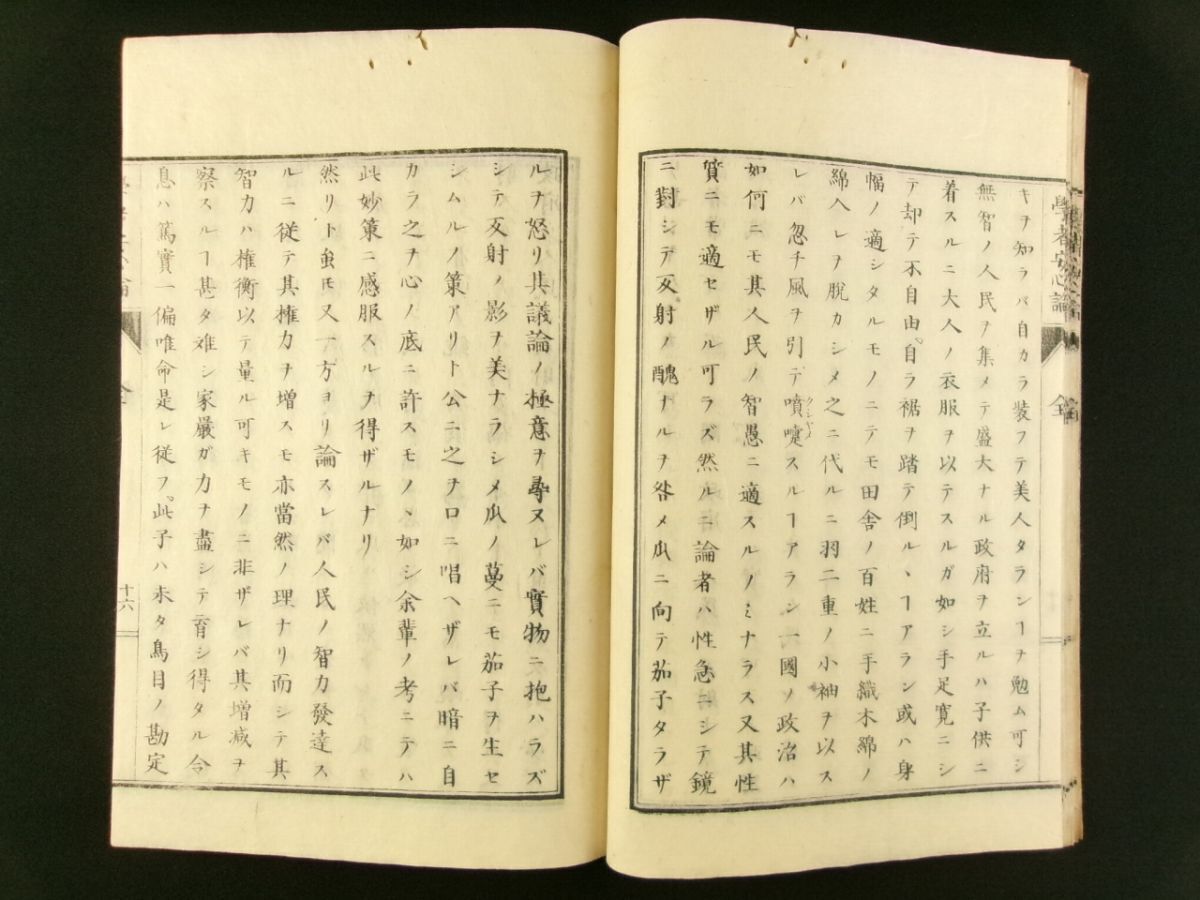 學者安心論
全
キヲ知ラバ自カラ装フテ美人タランヿヲ勉ム可シ
無智ノ人民ヲ集メテ盛大ナル政府ヲ立ルハ子供ニ
着スルニ大人ノ衣服ヲ以テスルガ如シ手足寛ニシ
テ却テ不自由自ラ裾ヲ踏テ倒ルヽヿアラン或ハ身
幅ノ適シタルモノニテモ田舎ノ百姓ニ手織木綿ノ
綿入レヲ脱カシメ之ニ代ルニ羽二重ノ小袖ヲ以ス
レバ忽チ風ヲ引テ噴嚏スルヿアラン一國ノ政治ハ
クシヤメ
如何ニモ其人民ノ智愚ニ適スルノミナラス又其性
質ニモ適セザル可ラズ然ルニ論者ハ性急ニシテ鏡
ニ對シテ反射ノ醜ナルヲ咎メ瓜ニ向テ茄子タラザ
ルヲ怒リ其議論ノ極意ヲ尋ヌレバ實物ニ抱ハラズ
シテ反射ノ影ヲ美ナラシメ瓜ノ蔓ニモ茄子ヲ生セ
シムルノ策アリト公ニ之ヲ口ニ唱ヘザレバ暗ニ自
カラ之ヲ心ノ底ニ許スモノヽ如シ余輩ノ考ニテハ
此妙策ニ感服スルヲ得ザルナリ
然リト虽モ又一方ヨリ論スレバ人民ノ智力發達ス
ルニ従テ其權力ヲ増スモ亦當然ノ理ナリ而シテ其
智力ハ權衡以テ量ル可キモノニ非ザレバ其増减ヲ
察スルヿ甚タ难シ家厳ガ力ヲ盡シテ育シ得タル令
息ハ篤實一偏唯命是レ従フ此子ハ未タ鳥目ノ勘定
十六